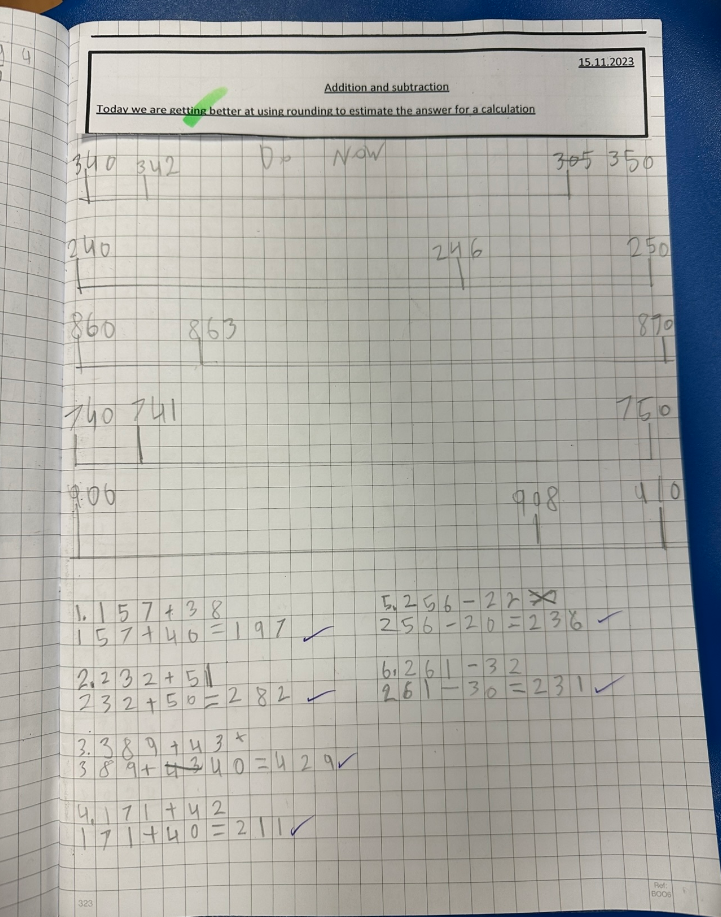 15.11.2023
Addition and subtraction
Today we are getting better at using rounding to estimate the answer for a calculation
Do Now
340 342 305 350
240 246 250
860 863 870
740 741 750
900 908 910
1. 157 + 38
157 + 40 = 197
2. 232 + 51
232 + 50 = 282
3. 389 + 43
389 + 43 40 = 429
4. 171 + 42
171 + 40 = 211
5. 256 - 22
256 - 20 = 236
6. 261 - 32
261 - 30 = 231
323
Ref.
BO06